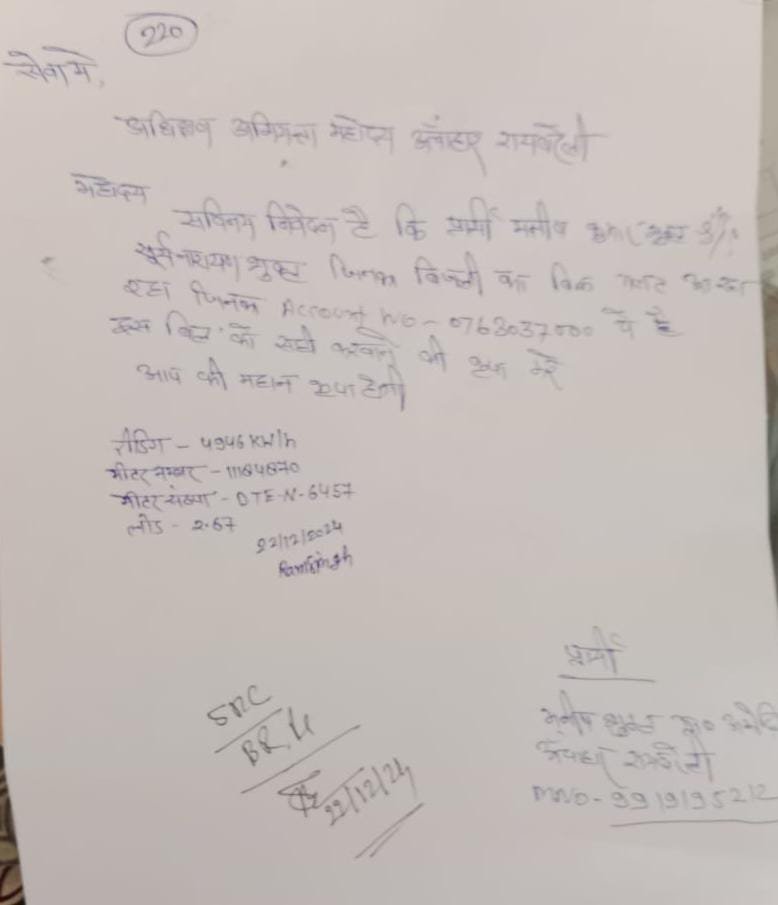 220
सेवा में,
अधिशासी अभियन्ता महोदय ऊँचाहार रायबरेली
महोदय
सविनय निवेदन है कि प्रार्थी मनीष कुमार शुक्ल S/o
सूर्यनारायण शुक्ल जिनका बिजली का बिल
रहा जिनका Account No - 0763037000 ये है
इस बिल को सही करवाने की कृपा करें
आप की महान कृपा होगी
रीडिंग - 4946 KW/h
मीटर नम्बर - 11164870
मीटर संख्या - DTE-N-6457
लोड - 2.67
22/12/2024
Ramsingh
SDC
BR
22/12/24
प्रार्थी
मनीष शुक्ल
ऊँचाहार रायबरेली
MNO - 9919195212